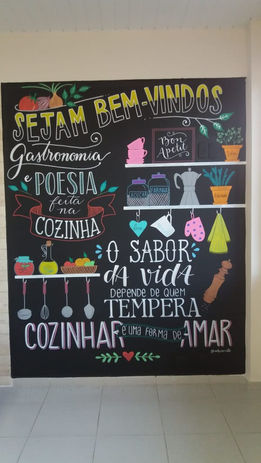 SEJAM BEM-VINDOS
Gastronomia
e POESIA
feita
na
COZINHA
Bon
Apetit
O SABOR
DA VIDA
DEPENDE DE QUEM
TEMPERA
COZINHAR É UMA FORMA DE AMAR